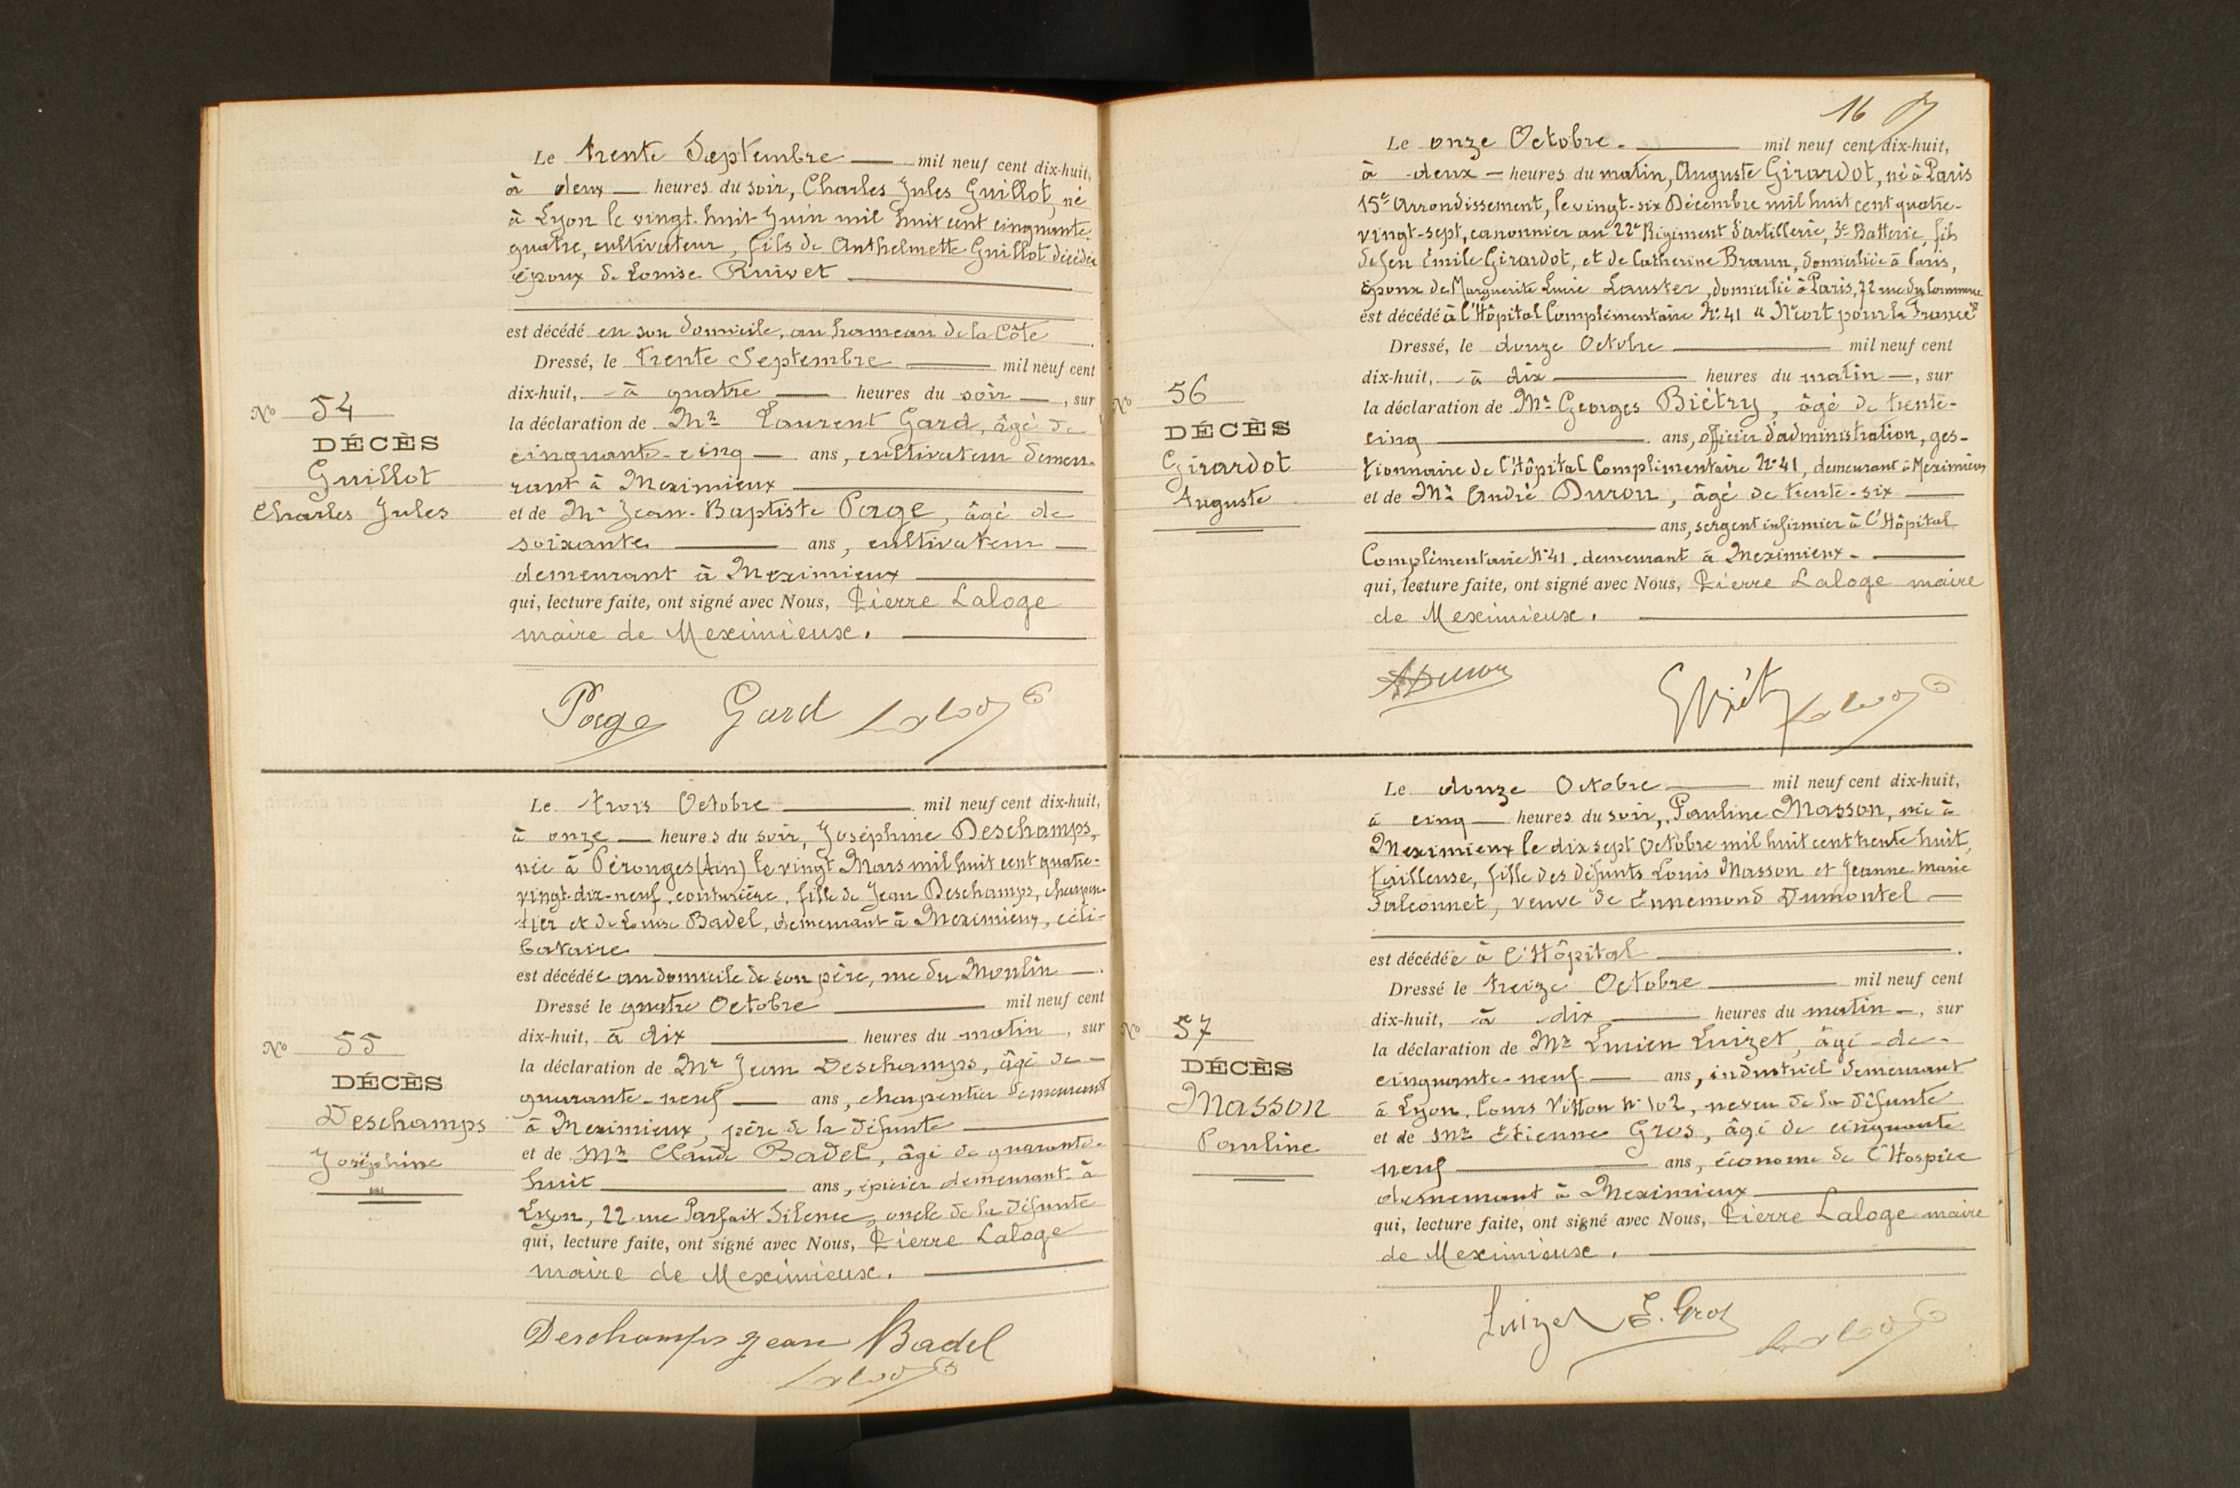 Le trente Septembre mil neuf cent dix-huit,
à deux heures du soir, Charles Jules Guillot, né
à Lyon le vingt-huit Juin mil huit cent cinquante
quatre, cultivateur, fils de Anthelmette Guillot décédée
époux de Louise Ruivet
est décédé en son domicile, au hameau de la Côte.
Dressé, le trente Septembre mil neuf cent
dix-huit, à quatre heures du soir, sur
la déclaration de Mr Laurent Gard, âgé de
cinquante-cinq ans, cultivateur demeu-
rant à Meximieux
et de Mr Jean-Baptiste Page, âgé de
soixante ans, cultivateur
demeurant à Meximieux
qui, lecture faite, ont signé avec Nous, Pierre Laloge
maire de Meximieux.
No 54
DÉCÈS
Guillot
Charles Jules
Page Gard Laloge
Le trois Octobre mil neuf cent dix-huit,
à onze heures du soir, Joséphine Deschamps,
née à Pérouges (Ain) le vingt Mars mil huit cent quatre-
vingt-dix-neuf, couturière, fille de Jean Deschamps, charpen-
tier et de Louise Badel, demeurant à Meximieux, céli-
bataire
est décédée au domicile de son père, rue du Moulin.
Dressé le quatre Octobre mil neuf cent
dix-huit, à dix heures du matin, sur
la déclaration de Mr Jean Deschamps, âgé de
quarante-neuf ans, charpentier demeurant
à Meximieux, père de la défunte
et de Mr Claude Badel, âgé de quarante-
huit ans, épicier demeurant à
Lyon, 22 rue Parfait Silence, oncle de la défunte
qui, lecture faite, ont signé avec Nous, Pierre Laloge
maire de Meximieux.
No 55
DÉCÈS
Deschamps
Joséphine
Deschamps Jean Badel
Laloge
16
Le onze Octobre. mil neuf cent dix-huit,
à deux heures du matin, Auguste Girardot, né à Paris
15e Arrondissement, le vingt-six Décembre mil huit cent quatre-
vingt-sept, canonnier au 22e Régiment d'artillerie, 3e Batterie, fils
de feu Emile Girardot, et de Catherine Braun, domiciliée à Paris,
époux de Marguerite Lucie Lauster, domicilié à Paris, 72 rue du Commerce
est décédé à l'Hôpital Complémentaire No 41 "Mort pour la France"
Dressé, le douze Octobre mil neuf cent
dix-huit, à dix heures du matin, sur
la déclaration de Mr Georges Biétry, âgé de trente-
cinq ans, officier d'administration, ges-
tionnaire de l'Hôpital Complémentaire No 41, demeurant à Meximieux
et de Mr André Duron, âgé de trente-six
ans, sergent infirmier à l'Hôpital
Complémentaire No 41, demeurant à Meximieux.
qui, lecture faite, ont signé avec Nous, Pierre Laloge maire
de Meximieux.
No 56
DÉCÈS
Girardot
Auguste
ADuron GBiétry Laloge
Le douze Octobre mil neuf cent dix-huit,
à cinq heures du soir, Pauline Masson, née à
Meximieux le dix sept Octobre mil huit cent trente huit,
tailleuse, fille des défunts Louis Masson et Jeanne-Marie
Falconnet, veuve de Ennemond Dumontel
est décédée à l'Hôpital.
Dressé le treize Octobre mil neuf cent
dix-huit, à dix heures du matin, sur
la déclaration de Mr Lucien Luizet, âgé de
cinquante-neuf ans, industriel demeurant
à Lyon, Cours Vitton No 102, neveu de la défunte
et de Mr Etienne Gros, âgé de cinquante
neuf ans, économe de l'Hospice
demeurant à Meximieux
qui, lecture faite, ont signé avec Nous, Pierre Laloge maire
de Meximieux.
No 57
DÉCÈS
Masson
Pauline
Luizet E. Gros Laloge